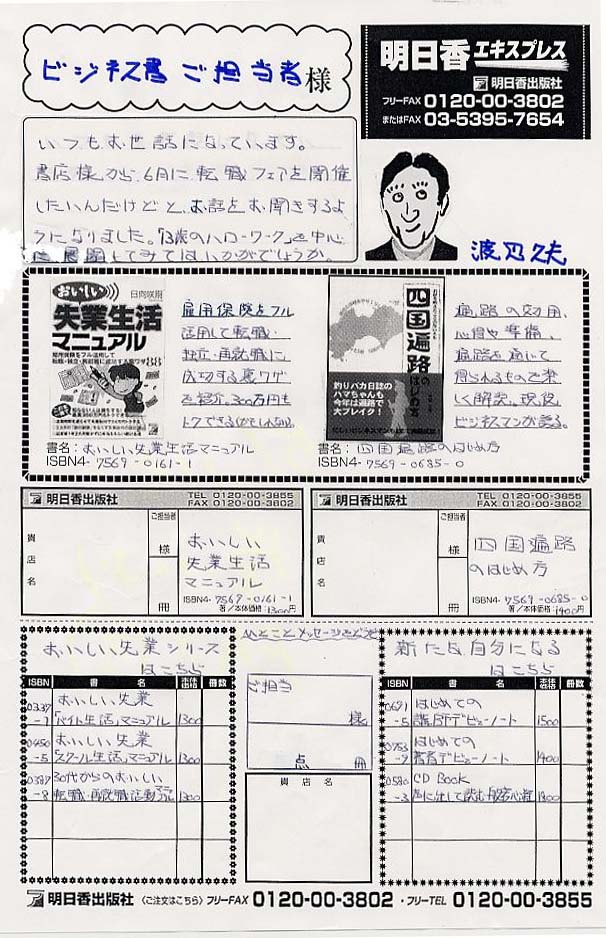 ビジネス書 ご担当者 様
明日香エキスプレス
明日香出版社
フリーFAX 0120-00-3802
またはFAX 03-5395-7654
いつもお世話になっています。
書店様から、6月に転職フェアを開催
したいんだけどと、お話をお聞きするよ
うになりました。「13歳のハローワーク」を中心
に展開してみてはいかがでしょうか。
渡辺久夫
おいしい 日向咲嗣
失業生活
マニュアル
雇用保険をフル
活用して転職・
独立・再就職に
成功する裏ワザ
を紹介。300万円も
トクできるかもしれない。
書名:おいしい失業生活マニュアル
ISBN4-7569-0161-1
四国遍路のはじめ方
釣りバカ日誌の
ハマちゃんも
今年は遍路で
大ブレイク!
遍路の効用、
心得や準備、
遍路を通じて
得られるもので楽
しく解説。現役
ビジネスマンが語る。
書名:四国遍路のはじめ方
ISBN4-7569-0685-0
明日香出版社 TEL 0120-00-3855
FAX 0120-00-3802
貴店名
ご担当者
様
冊
おいしい
失業生活
マニュアル
ISBN4-7569-0161-1
著/本体価格:1300円
明日香出版社 TEL 0120-00-3855
FAX 0120-00-3802
貴店名
ご担当者
様
冊
四国遍路
のはじめ方
ISBN4-7569-0685-0
著/本体価格:1400円
おいしい失業シリーズ
はこちら
ISBN 書名 本体価格 冊数
0337-7 おいしい失業「バイト生活」マニュアル 1300
0450-5 おいしい失業「スクール生活」マニュアル 1300
0387-8 30代からのおいしい転職・再就職活動マニュアル 1300
ひとことメッセージをどうぞ
ご担当
様
点 冊
貴店名
新たな自分になる
はこちら
ISBN 書名 本体価格 冊数
0691-5 はじめての講師デビューノート 1500
0753-9 はじめての著者デビューノート 1400
0590-3 CD Book 声に出して読む般若心経 1300
明日香出版社 〈ご注文はこちら〉フリーFAX 0120-00-3802 ・フリーTEL 0120-00-3855